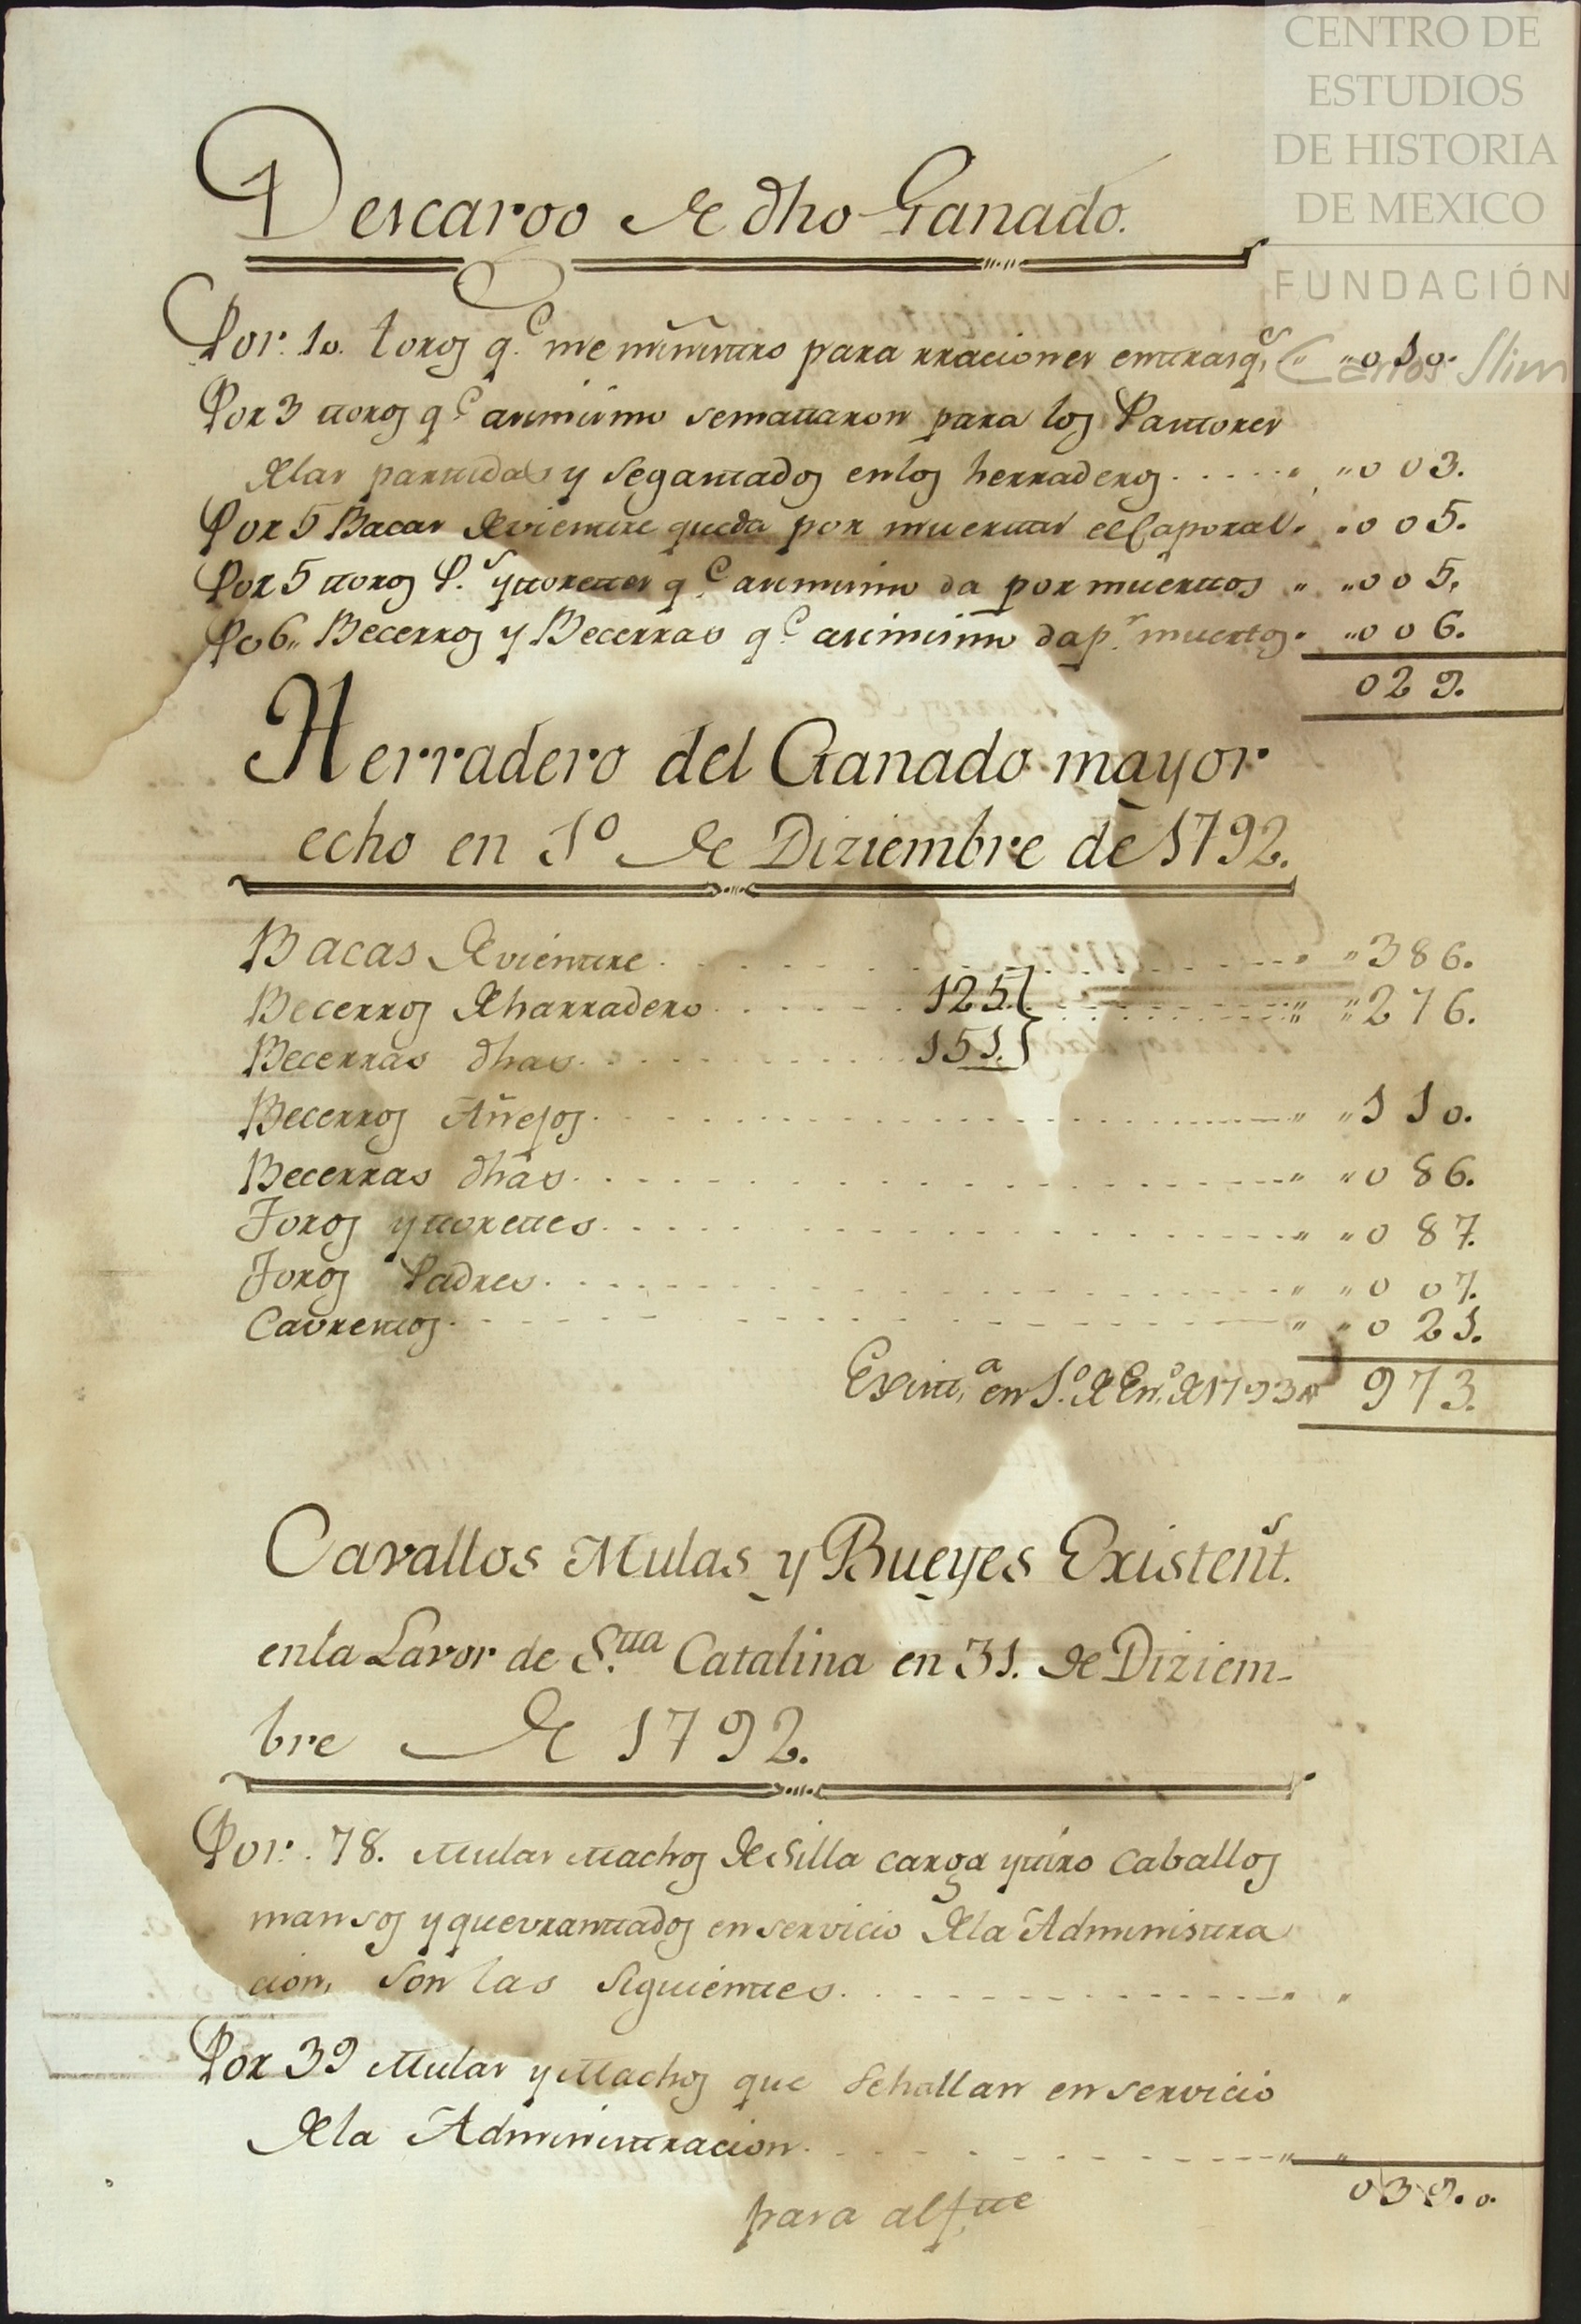 CENTRO DE
ESTUDIOS
DE HISTORIA
DE MEXICO
FUNDACIÓN
Carlos Slim
Descargo de dho Ganado.
Por 10. toros q.e me ministro para rraciones 010.
Por 3 ttoros q.e asimismo semattaron para los Pastores
delas parttidas y segastados enlos herraderos 003.
Por 5 Bacas devientre queda por muertas el Caporal. 005.
Por 5 ttoros P.s yttorettes q.e asimismo da por muerttos 005.
Po 6,, Becerros y Becerras q.e asimismo da p.r muertos. 006.
029.
Herradero del Ganado mayor
echo en 1º de Diziembre de 1792.
Bacas devienttre 386.
Becerros deharradero 125. 276.
Becerras dhas 151.
Becerros Añejos 110.
Becerras dhas 086.
Toros yttorettes 087.
Toros Padres 007.
Cavresttos 021.
Existt.a en 1.º de En.º de 1793 973.
Cavallos Mulas y Bueyes Existent.s
enla Lavor de S.tta Catalina en 31. de Diziem-
bre de 1792.
Por 78. Mulas Machos desilla carga yttiro caballos
mansos yquevranttados enservicio dela Administtra
cion, son las siguienttes.
Por 39 Mulas y Machos que sehallan enservicio
dela Administtracion. 039.
para alf.tte